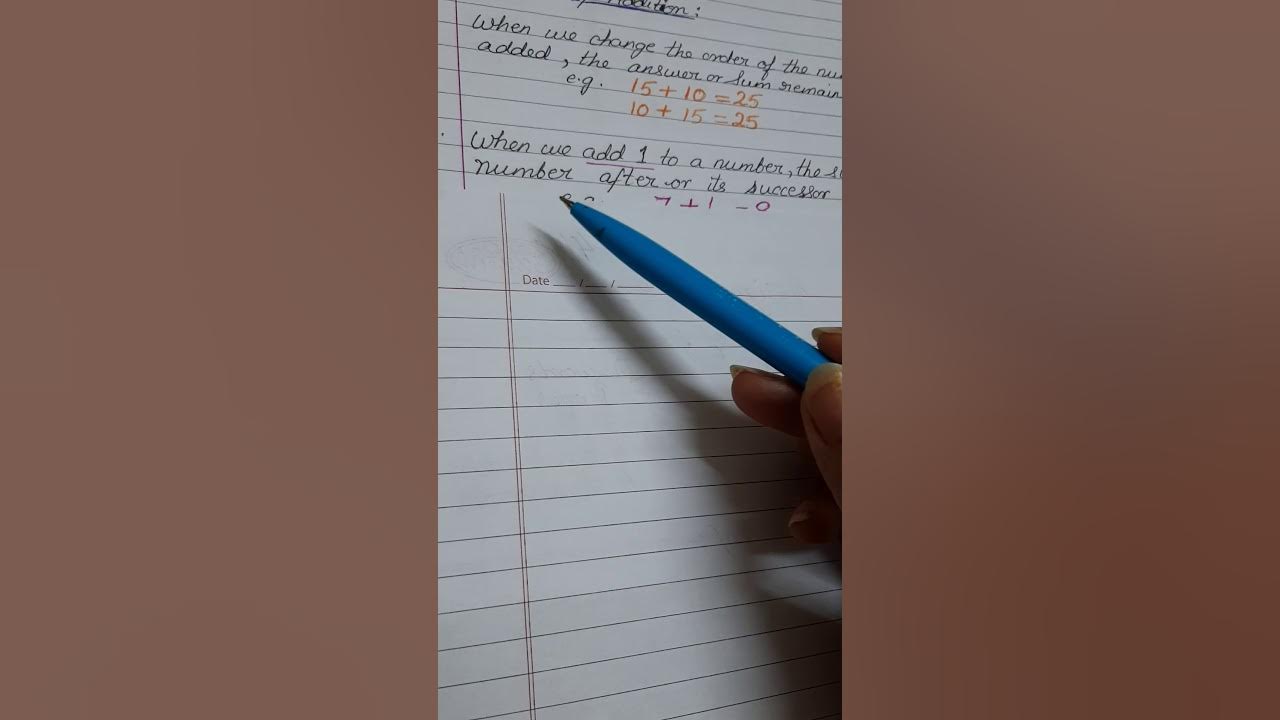 Addition:
When we change the order of the
added, the answer or sum remain
e.g. 15 + 10 = 25
10 + 15 = 25
When we add 1 to a number, the
number after or its successor
7 + 1
Date